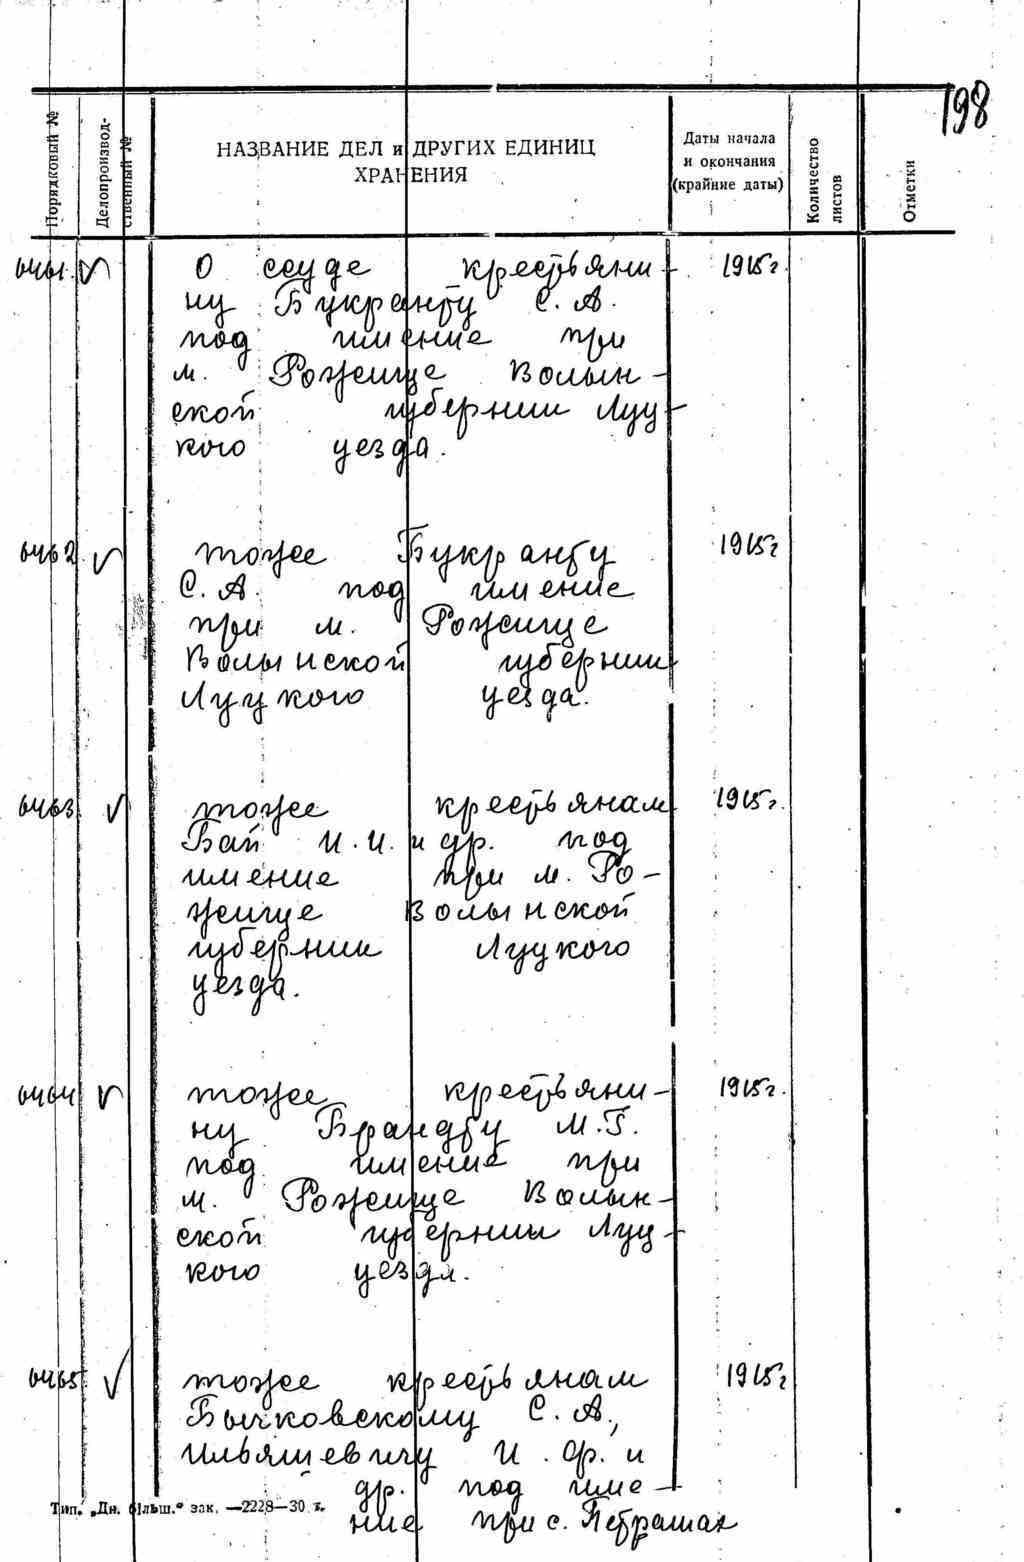 198
Порядковый №
Делопроизвод-
ственный №
НАЗВАНИЕ ДЕЛ и ДРУГИХ ЕДИНИЦ
ХРАНЕНИЯ
Даты начала
и окончания
(крайние даты)
Количество
листов
Отметки
6461. О ссуде крестьяни- 1915г.
ну Букранту С. А.
под имение при
м. Рожище Волын-
ской губернии Луц-
кого уезда.
6462. тоже Букранту 1915г
С. А. под имение
при м. Рожище
Волынской губернии
Луцкого уезда.
6463 тоже крестьянам 1915г.
Бай И. И. и др. под
имение при м. Ро-
жище Волынской
губернии Луцкого
уезда.
6464 тоже крестьяни- 1915г.
ну Брандту М. Г.
под имение при
м. Рожище Волын-
ской губернии Луц-
кого уезда.
6465 тоже крестьянам 1915г
Бычковскому С. А.,
Ильяшевичу И. Ф. и
др. под име-
Тип. „Дн. більш." зак. —2228—30 г.
ние при с. Петрашах